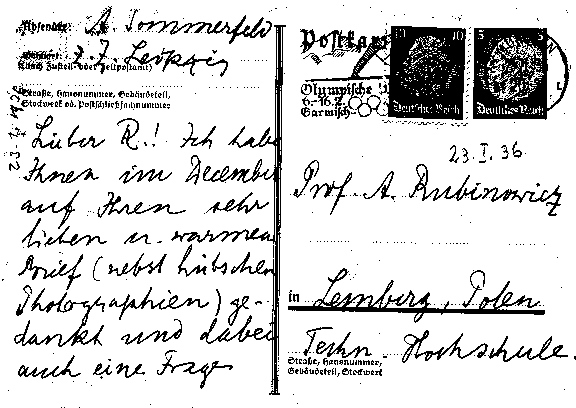 Absender: A. Sommerfeld
z. Z. Leipzig
(auch Zustell- oder Leitpostamt)
Straße, Hausnummer, Gebäudeteil,
Stockwerk od. Postschließfachnummer
Lieber R.! Ich habe
Ihnen im December
auf Ihren sehr
lieben u. warmen
Brief (nebst hübschen
Photographien) ge-
dankt und dabei
auch eine Frage
Postkarte
Olympische
6.-16.2.
Garmisch
10 10
Deutsches Reich
5
Deutsches Reich
23. I. 36
Prof. A. Rubinowicz
in Lemberg, Polen
Techn. Hochschule.
Straße, Hausnummer,
Gebäudeteil, Stockwerk